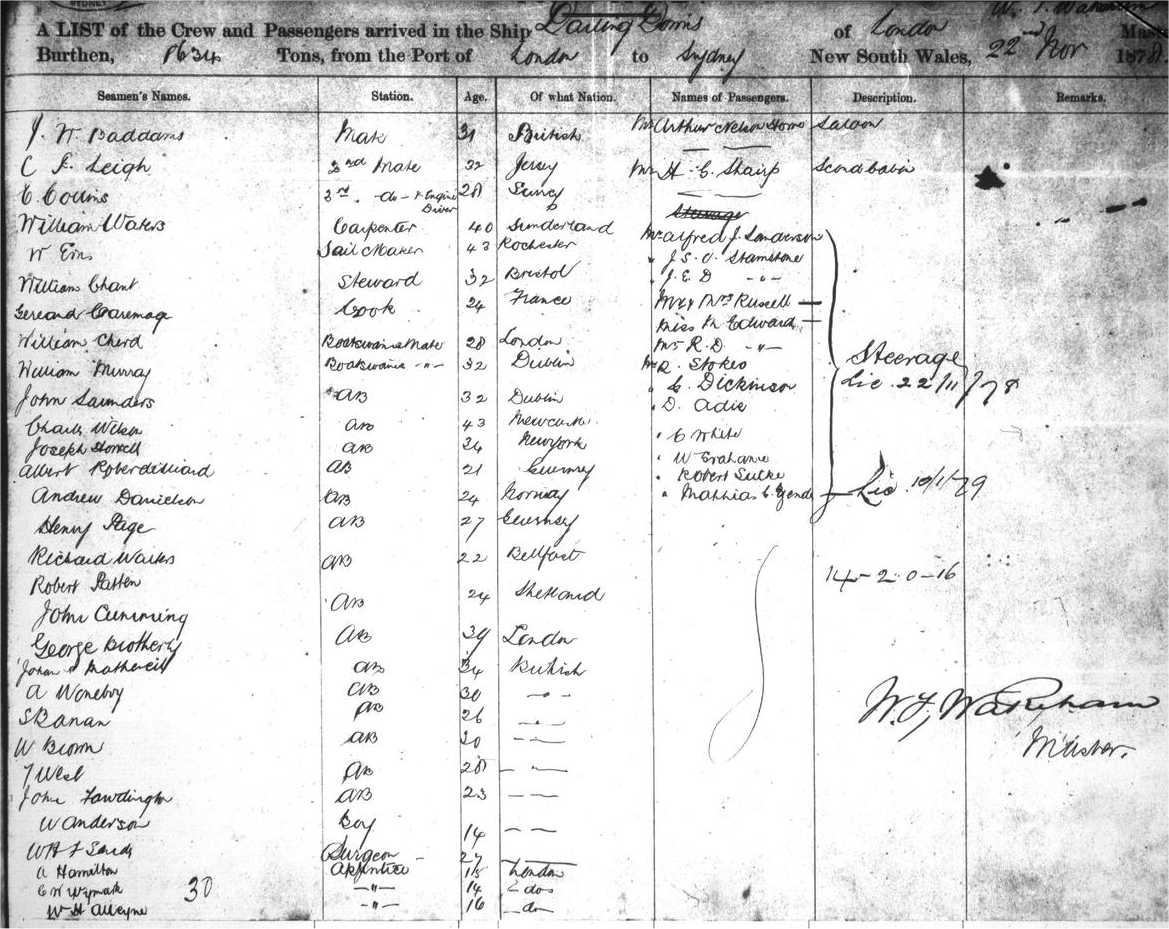 SYDNEY
W. F. Wakeham
A LIST of the Crew and Passengers arrived in the Ship Darling Downs of London Master
Burthen, 1634 Tons, from the Port of London to Sydney New South Wales, 22nd Nov 1878
Seamen's Names. Station. Age. Of what Nation. Names of Passengers. Description. Remarks.
J. W. Baddams Mate 31 British Mr Arthur Nelson Saloon
C F. Leigh 2nd Mate 32 Jersey Mr H. C. Shairp Second Cabin
E. Collins 3rd -do- & Engine Driver 28 Surrey
Steerage
William Waters Carpenter 40 Sunderland Mr Alfred J. Sanderson
W Sail Maker 43 Rochester " J. S. Stamstone
William Chant Steward 32 Bristol " J. E. D -"-
Cook 24 France Mr & Mrs Russell
Miss M Edward
William Cherd Boatswains Mate 28 London Mr R. D -"-
William Murray Boatswains -"- 32 Dublin Mr R. Stokes Steerage
John Saunders AB 32 Dublin " G. Dickinson Lic. 22/11/78
" D. Adie
Charles Wilson AB 43 Newcastle " C White
Joseph Howell AB 24 New York " W Grahame
Albert AB 21 Guernsey " Robert
Andrew Danielson AB 24 Norway " Mathias C. Lic. 10/1/79
Henry Page AB 27 Guernsey
Richard Waters AB 22 Bellfast
Robert Patten AB 24 Shetland 14-2-0-16
John Cumming
George Brotherly AB 39 London
AB 34 British
A AB 30 -"-
AB 26 -"-
W Brown AB 30 -"-
T West AB 28 -"-
John Fawdington AB 23 — —
W Anderson Boy 14 — —
W H F Surgeon - 27
A Hamilton Apprentice 15 London
C W Wymark -"- 14 - do
W H Alleyne -"- 16 - do
30
W. F. Wakeham
Master.